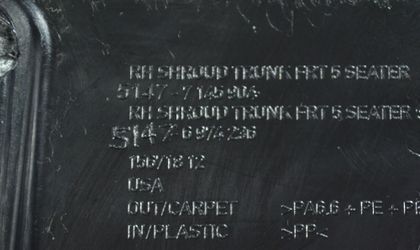 RH SHROUD TRUNK FRT 5 SEATER
5147-7 145 904
RH SHROUD TRUNK FRT 5 SEATER
5147 6 974 296
156/18 12
USA
OUT/CARPET >PA6.6 + PE + PF
IN/PLASTIC >PP<